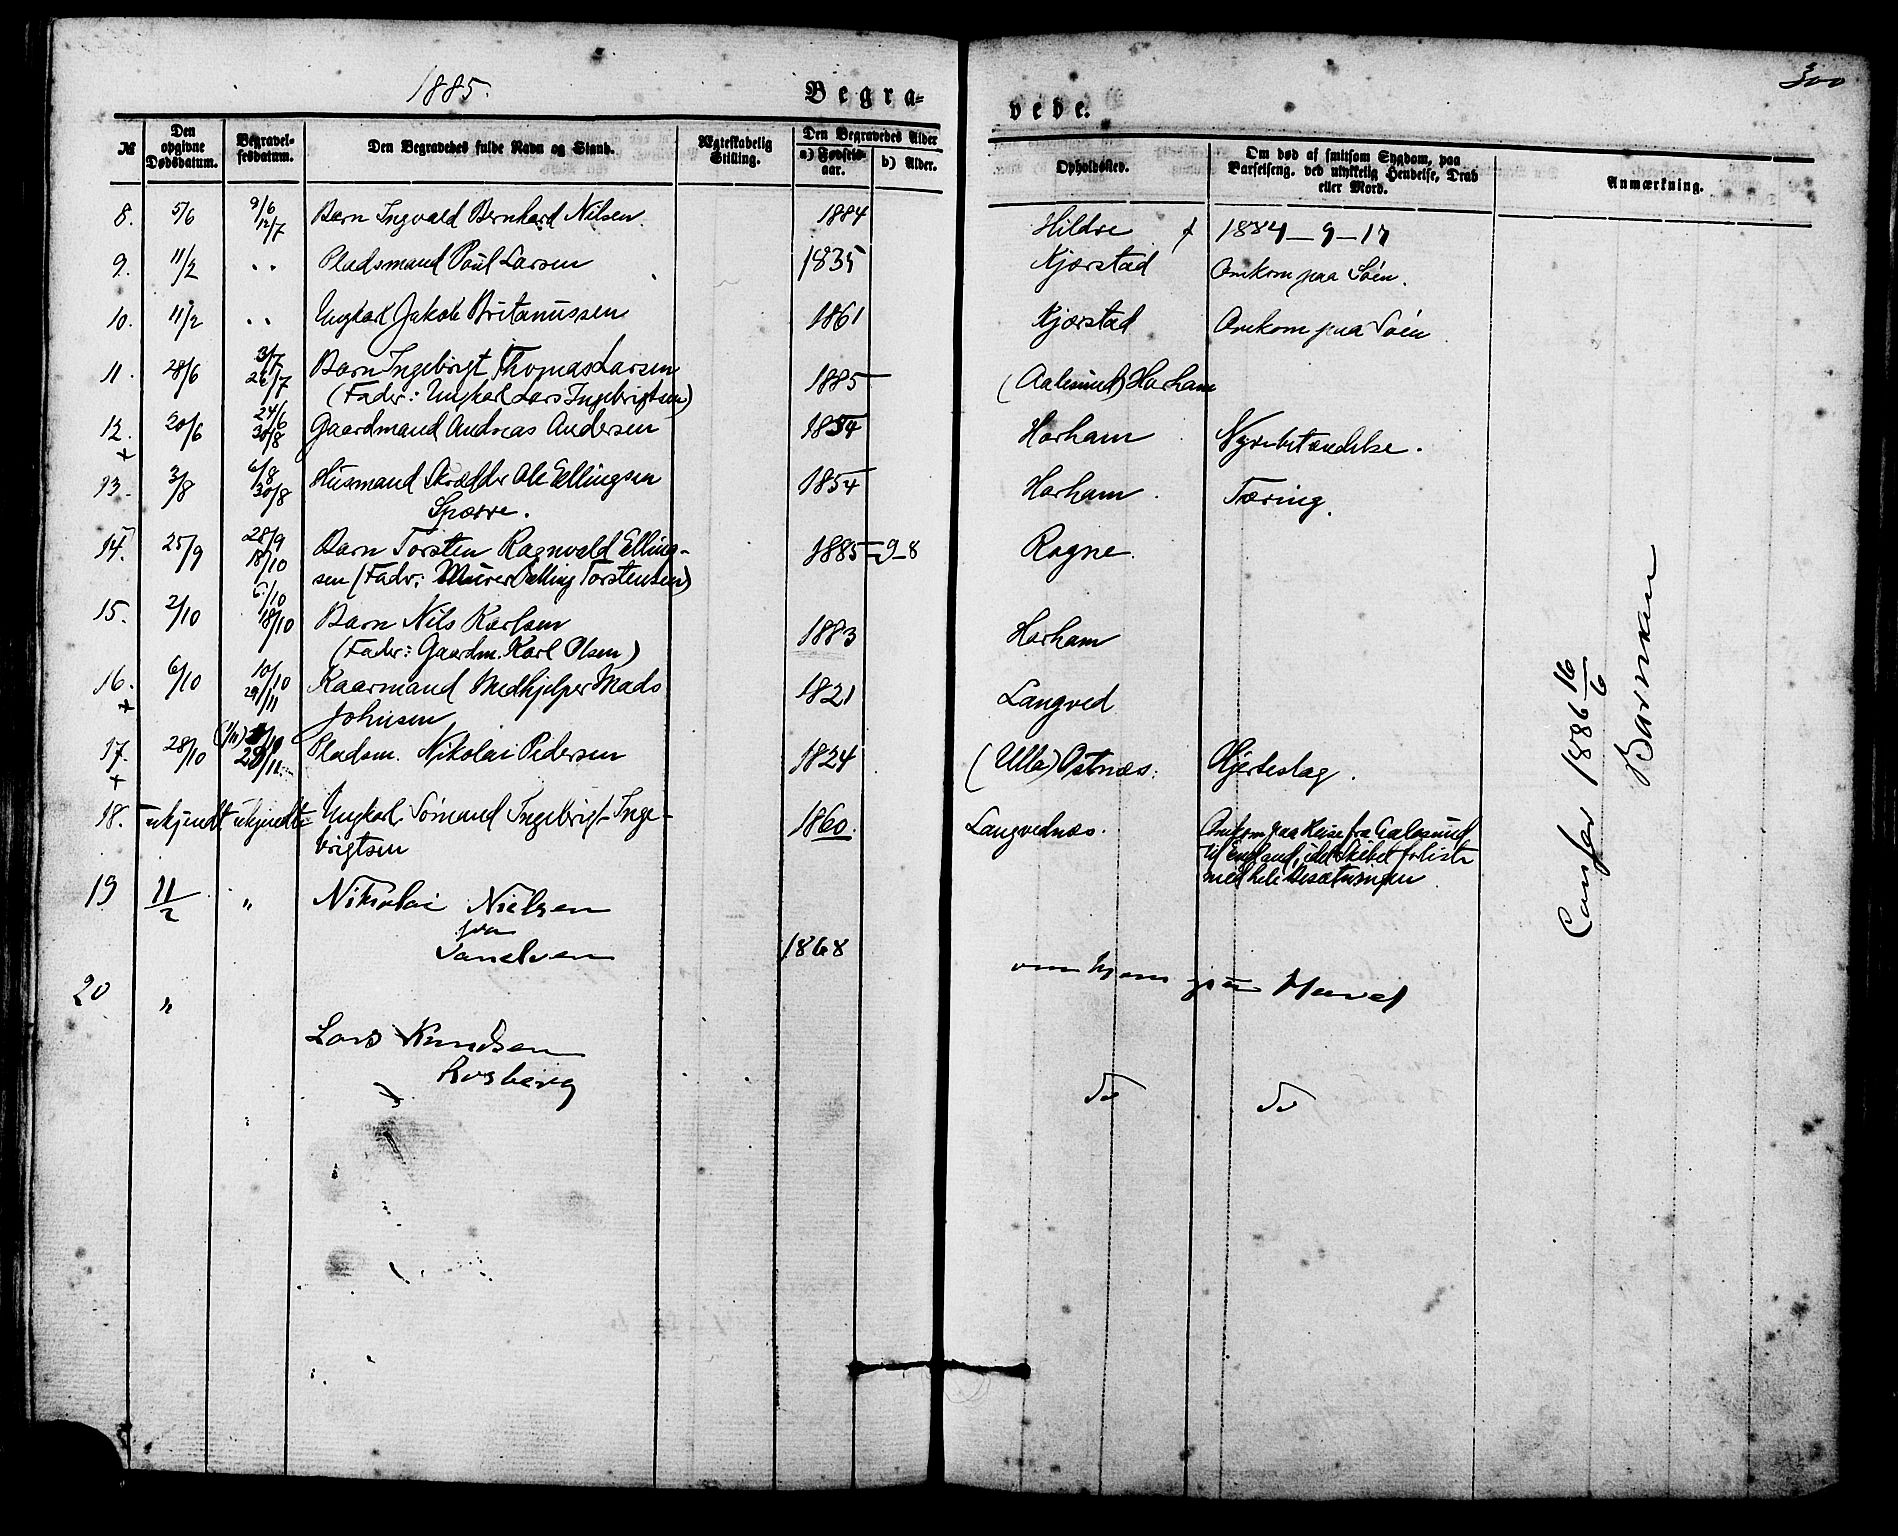 300
1885.
Begra=
vede.
№
Den opgivne Dødsdatum.
Begravel-sesdatum.
Den Begravedes fulde Navn og Stand.
Ægteskabelig Stilling.
Den Begravedes Alder
a) Fødsels-aar.
b) Alder.
Opholdssted.
Om død af smitsom Sygdom, paa Barselseng, ved ulykkelig Hendelse, Drab eller Mord.
Anmærkning.
8. 5/6 9/6 12/7 Barn Ingvald Bernhard Nilsen 1884 Hildre 1884-9-17
9. 11/2 " Pladsmand Paul Larsen 1835 Kjærstad Omkom paa Søen.
10. 11/2 " Ungkarl Jakob Britanussen 1861 Kjærstad Omkom paa Søen
11. 28/6 3/7 26/7 Barn Ingebrigt Thomas Larsen 1885 (Aalesund) Harham
(Fader: Ungkarl Lars Ingebrigtsen)
12. 20/6 24/6 30/8 Gaardmand Andreas Andersen 1854 Harham Nyrebetændelse.
13. 3/8 6/8 30/8 Husmand Skrædder Ole Ellingsen 1854 Harham Tæring.
Sparre.
14. 25/9 28/9 18/10 Barn Torsten Ragnvald Elling- 1885-9-8 Rogne
sen (Fader: Murer Elling Torstensen)
15. 2/10 6/10 18/10 Barn Nils Karlsen 1883 Harham
(Fader: Gaardm. Karl Olsen)
16. 6/10 10/10 29/11 Kaarmand Medhjelper Mads 1821 Langved
Johnsen
17. 28/10 (1/11) 29/11 Pladsm. Nikolai Pedersen 1824 (Ulla) Østnæs. Hjerteslag.
18. ukjendt ukjendt Ungkarl Sømand Ingebrigt Inge- 1860. Langvednæs. Omkom paa Reise fra Aalesund
brigtsen til England, idet Skibet forliste
med hele Besætningen
19 11/2 " Nikolai Nielsen
fra
1868
omkom paa Havet
20 "
Lars Knudsen
Rosberg
do do
Confer 1886 16/6